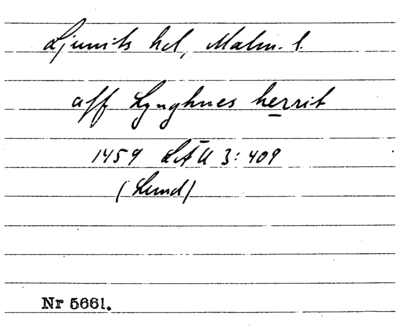 Ljunits hd, Malm. l.
aff Lyughnes herrit
1459 LÄU 3:409
(Lund)
Nr 5661.